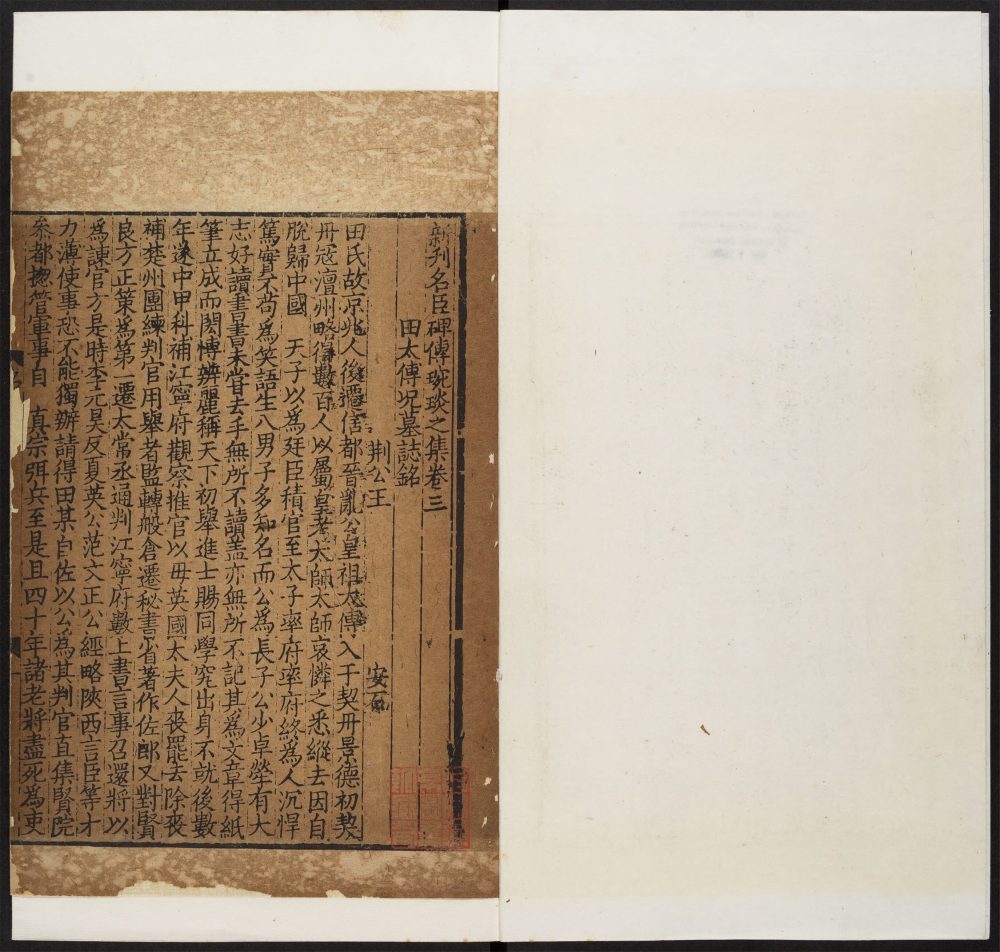 新刋名臣碑傳琬琰之集卷三
田太傅况墓誌銘
荆公王 安石
田氏故京兆人後遷信都晉亂公皇祖太傅入于契丹景德初契
丹寇澶州略得數百人以屬皇考太師太師哀憐之悉縱去因自
脫歸中國 天子以爲廷臣積官至太子率府率府終爲人沉悍
篤實不苟爲笑語生八男子多知名而公爲長子公少卓犖有大
志好讀書書未甞去手無所不讀盖亦無所不記其爲文章得紙
筆立成而閎愽辨麗稱天下初舉進士賜同學究出身不就後數
年遂中甲科補江寧府觀察推官以毋英國太夫人喪罷去除喪
補楚州團練判官用舉者監轉般倉遷秘書省著作佐郎又對賢
良方正策爲第一遷太常丞通判江寧府數上書言事召還將以
爲諫官方是時李元昊反夏英公范文正公經略陝西言臣等才
力薄使事恐不能獨辦請得田某自佐以公爲其判官直集賢院
叅都揔管軍事自 真宗弭兵至是且四十年諸老將盡死爲吏